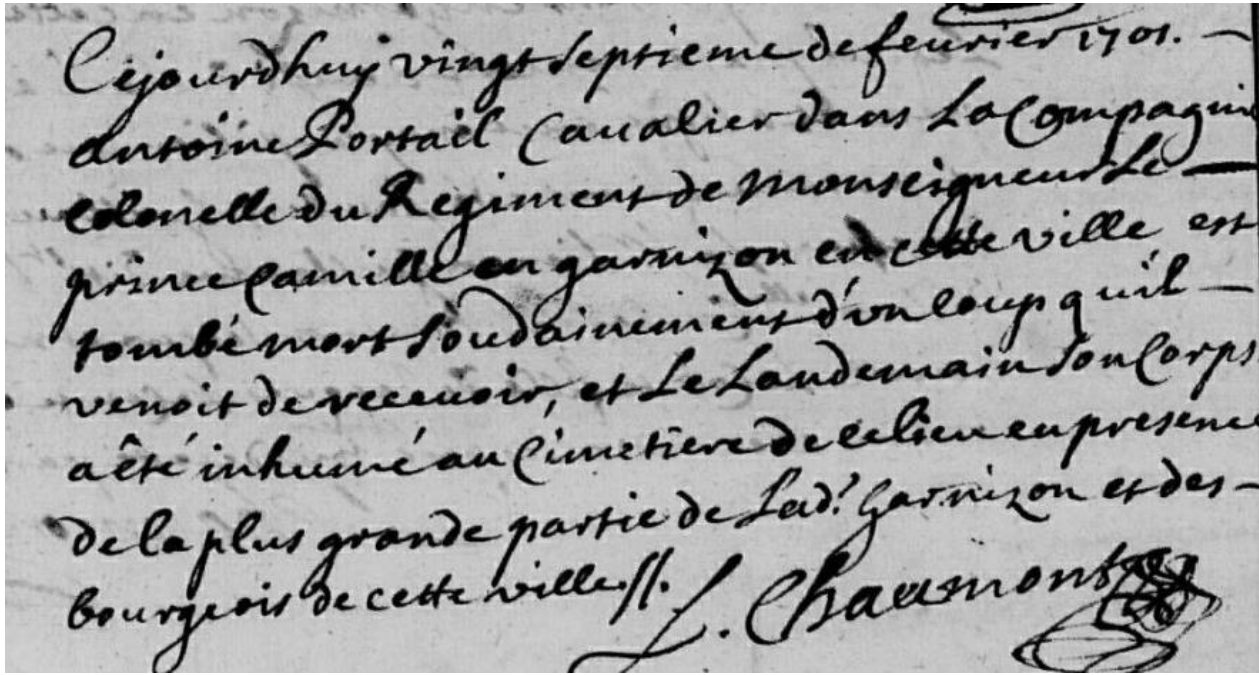 Cejourdhuy vingt septieme de feurier 1701. —
Antoine Portail Caualier dans La Compagnie
colonelle du Regiment de Monseigneur Le —
prince Camille en garnizon en cette ville, est
tombé mort soudainement d'vn coup qu'il —
venoit de receuoir, et Le Landemain son Corps
a été inhumé au Cimetiere de ce lieu en presence
de la plus grande partie de Lad.t garnizon et des —
bourgeois de cette ville //.
L. Chaumont